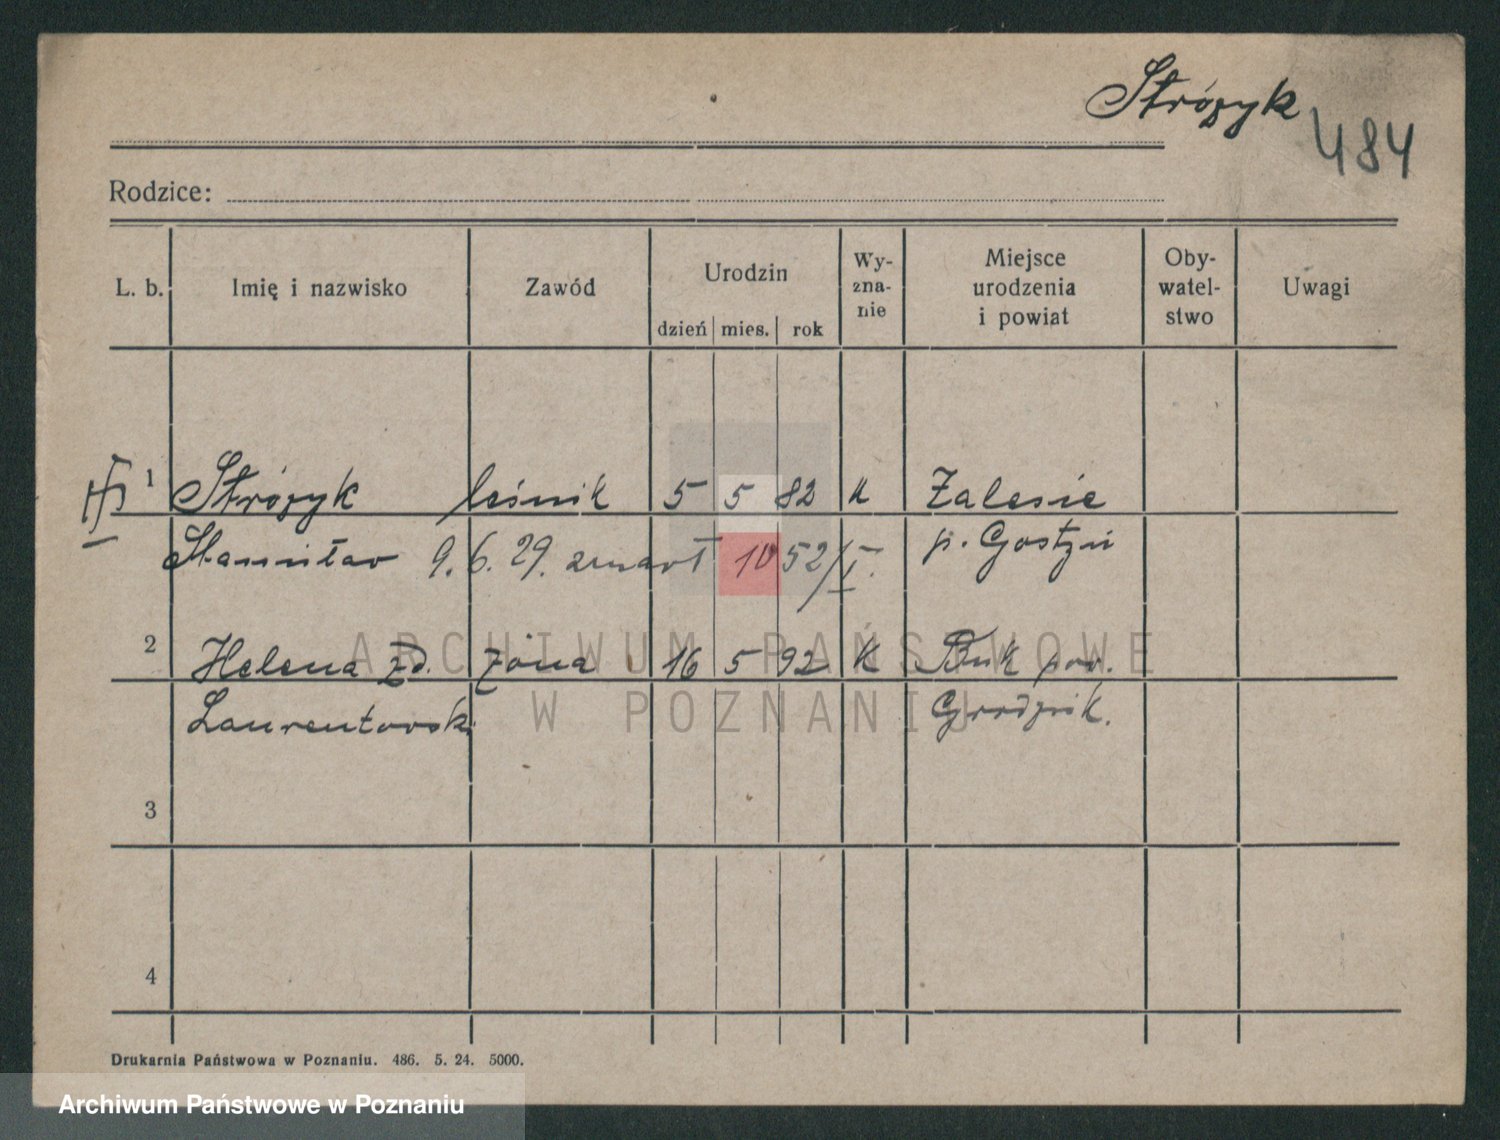 Stróżyk
484
Rodzice:
L. b. Imię i nazwisko Zawód Urodzin dzień mies. rok Wy-zna-nie Miejsce urodzenia i powiat Oby-watel-stwo Uwagi
1 Stróżyk leśnik 5 5 82 K Zalesie
Stanisław 9. 6. 29. zmarł 1052/I. p. Gostyń
2 Helena zd. żona 16 5 92 K Buk pow.
Laurentowski Grodzisk.
3
4
ARCHIWUM PAŃSTWOWE
W POZNANIU
Drukarnia Państwowa w Poznaniu. 486. 5. 24. 5000.
Archiwum Państwowe w Poznaniu